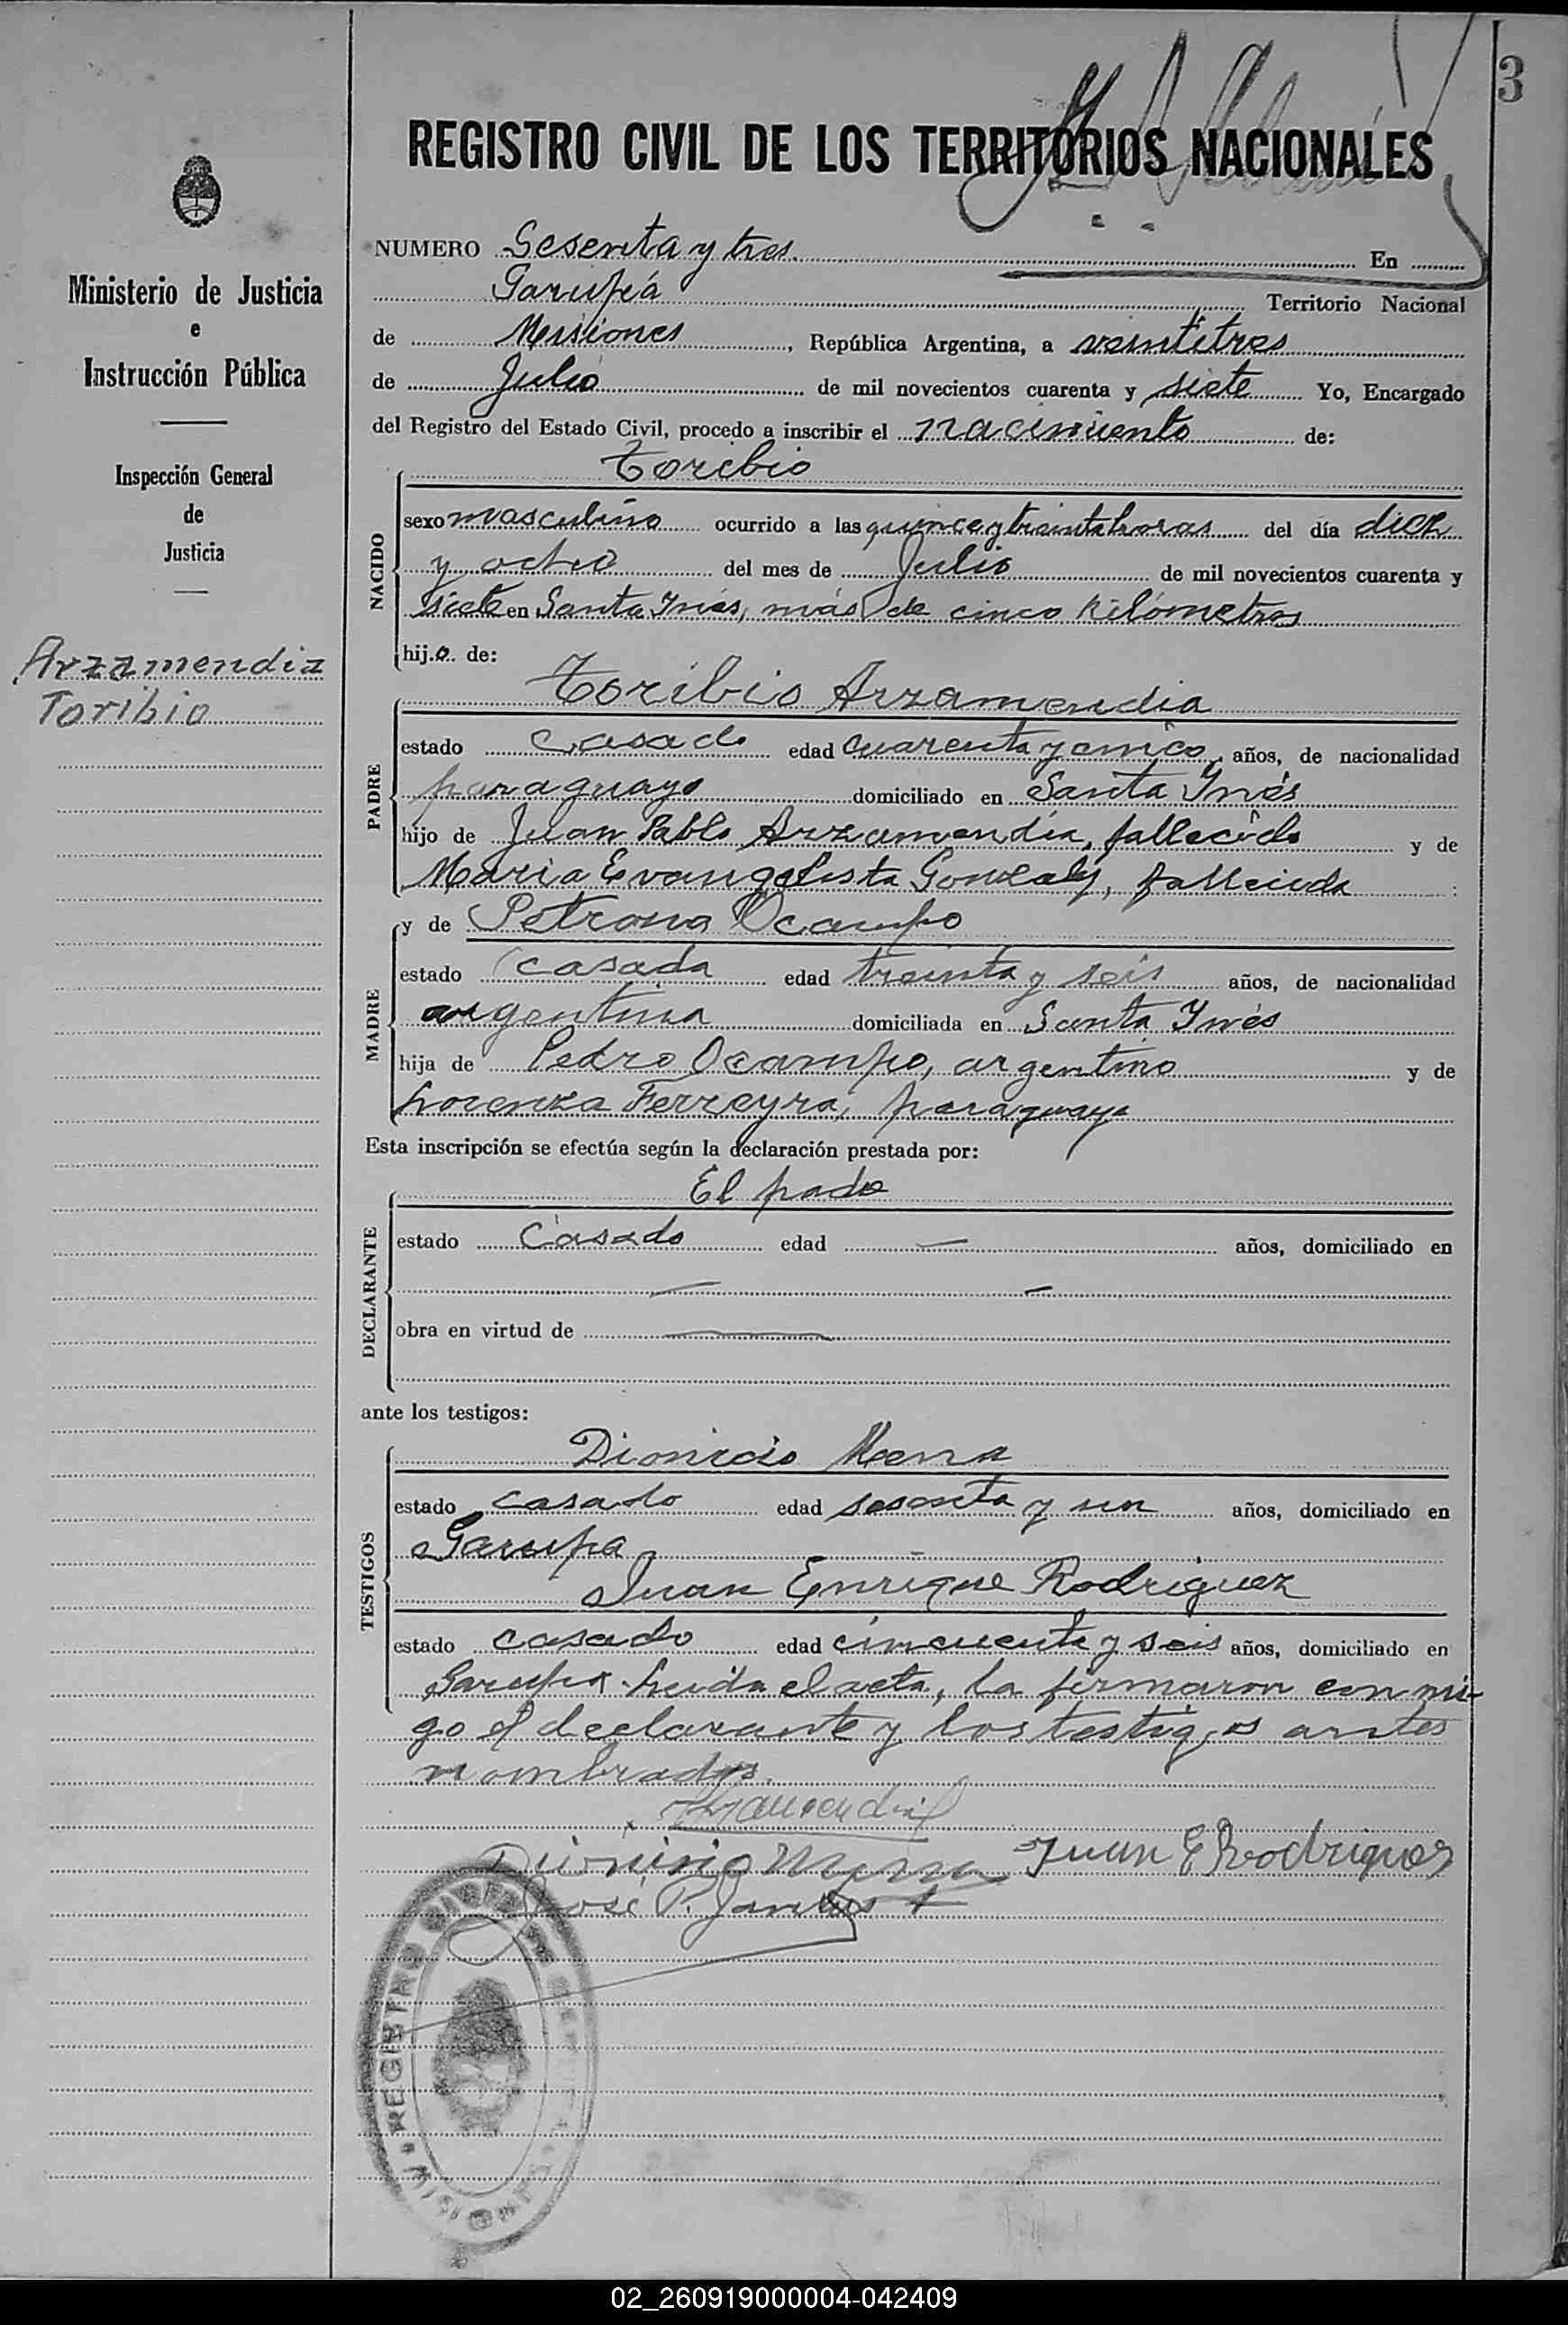 3
REGISTRO CIVIL DE LOS TERRITORIOS NACIONALES
Ministerio de Justicia
e
Instrucción Pública
Inspección General
de
Justicia
Arzamendia
Toribio
NUMERO Sesenta y tres. En
Garupá Territorio Nacional
de Misiones, República Argentina, a veintitres
de Julio de mil novecientos cuarenta y siete Yo, Encargado
del Registro del Estado Civil, procedo a inscribir el nacimiento de:
NACIDO
Toribio
sexo masculino ocurrido a las quince y treinta horas del día diez
y ocho del mes de Julio de mil novecientos cuarenta y
siete en Santa Inés, más de cinco kilómetros
hijo de:
PADRE
Toribio Arzamendia
estado casado edad cuarenta y cinco, años, de nacionalidad
paraguayo domiciliado en Santa Inés
hijo de Juan Pablo Arzamendia, fallecido y de
Maria Evangelista Gonzalez, fallecida
MADRE
y de Petrona Ocampo
estado casada edad treinta y seis años, de nacionalidad
argentina domiciliada en Santa Inés
hija de Pedro Ocampo, argentino y de
Lorenza Ferreyra, paraguaya
Esta inscripción se efectúa según la declaración prestada por:
DECLARANTE
El padre
estado Casado edad — años, domiciliado en
— —
obra en virtud de —
ante los testigos:
TESTIGOS
Dionicio Mena
estado casado edad sesenta y un años, domiciliado en
Garupa
Juan Enrique Rodriguez
estado casado edad cincuenta y seis años, domiciliado en
Garupa. Leida el acta, la firmaron conmi-
go el declarante y los testigos antes
nombrados.
Arzamendia
Dionicio Mena Juan E Rodriguez
José P.
REGISTRO CIVIL
02_260919000004-042409